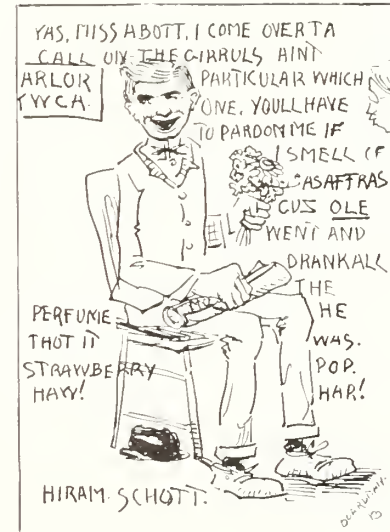 YAS, MISS ABOTT. I COME OVER TA
CALL ON THE GIRRULS AINT
ARLOR
YWCA.
PARTICULAR WHICH
ONE. YOULL HAVE
TO PARDON ME IF
I SMELL OF
SASAFFRAS
CUZ OLE
WENT AND
DRANK ALL
THE
PERFUME HE
THOT IT WAS.
STRAWBERRY POP.
HAW! HAR!
HIRAM SCHOTT.
13